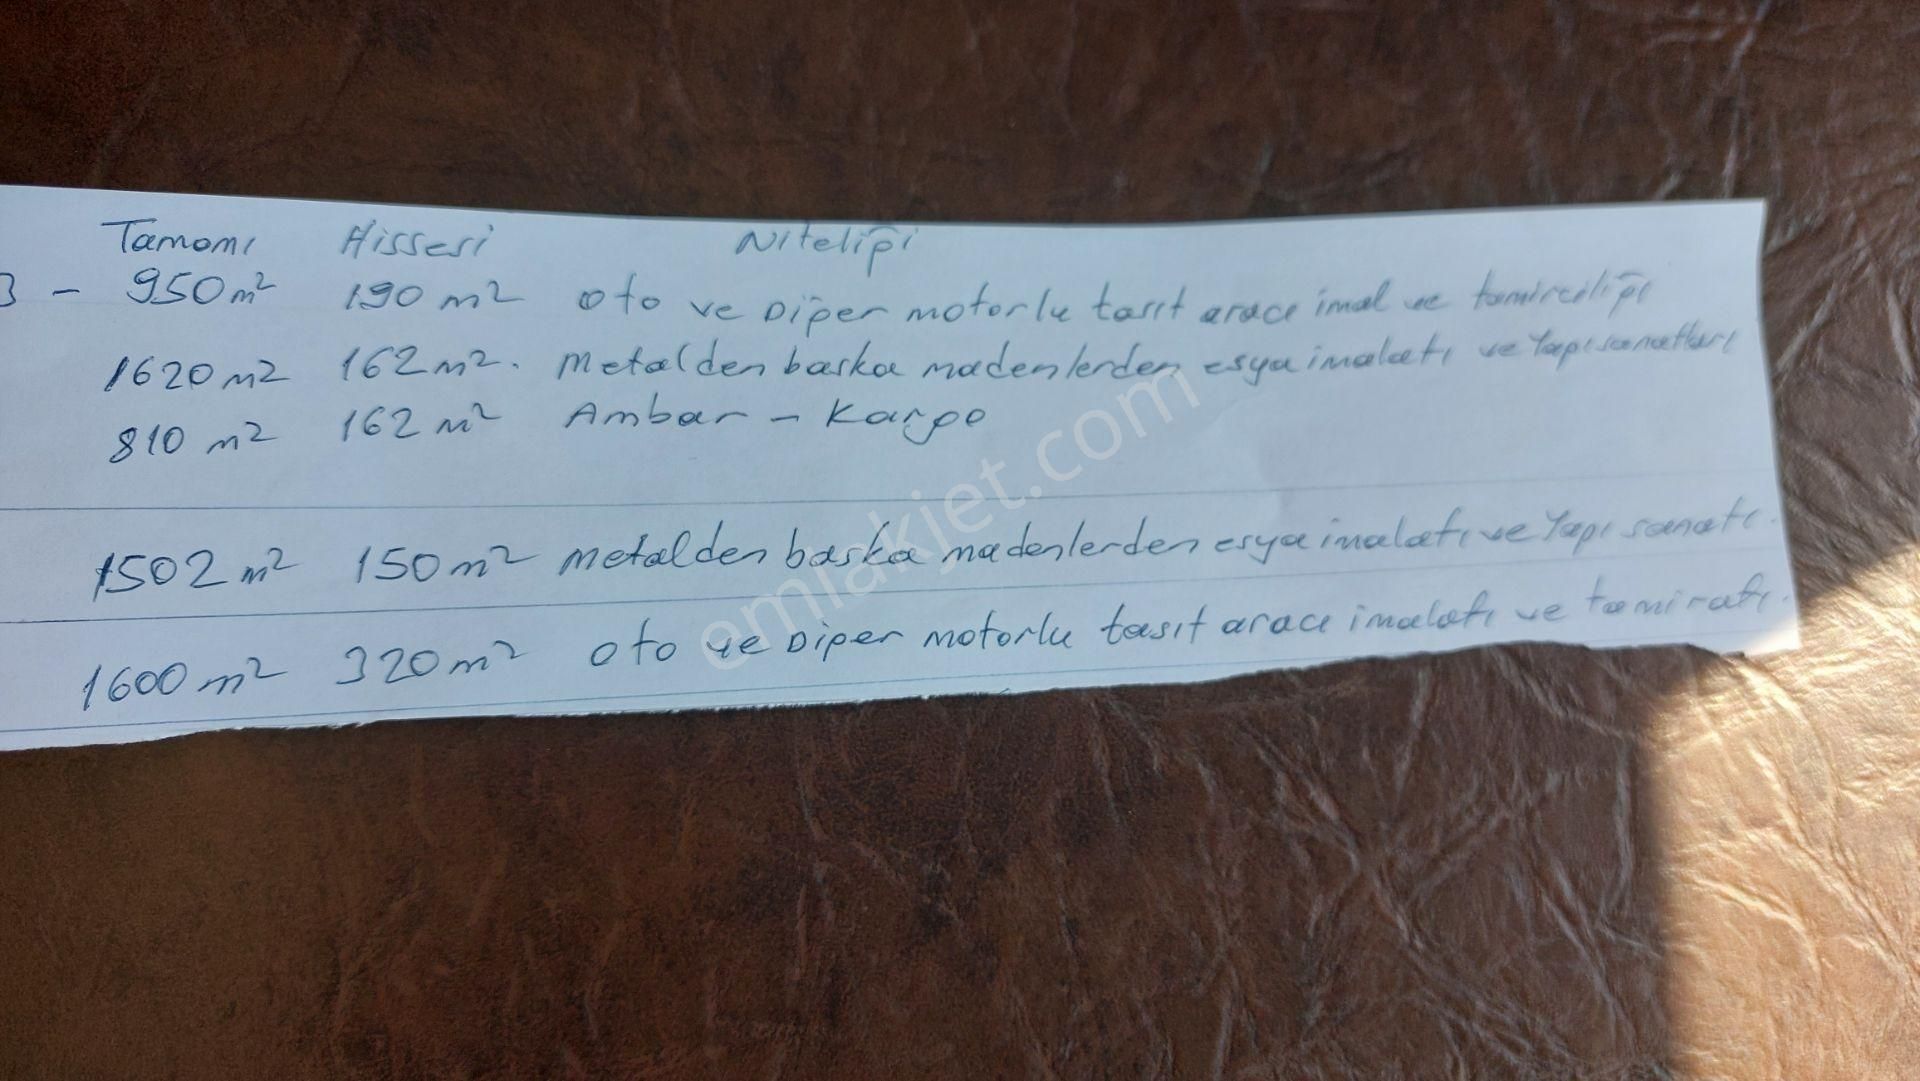 Tamamı Hissesi Niteliği
3 - 950 m² 190 m² oto ve Diğer motorlu tasıt aracı imal ve tamirciliği
1620 m² 162 m². Metalden baska madenlerden esya imalatı ve Yapı sanatları
810 m² 162 m² Ambar - Kargo
1502 m² 150 m² metalden baska madenlerden esya imalatı ve Yapı sanatı.
1600 m² 320 m² oto ve Diğer motorlu tasıt aracı imalatı ve tamiratı.
emlakjet.com